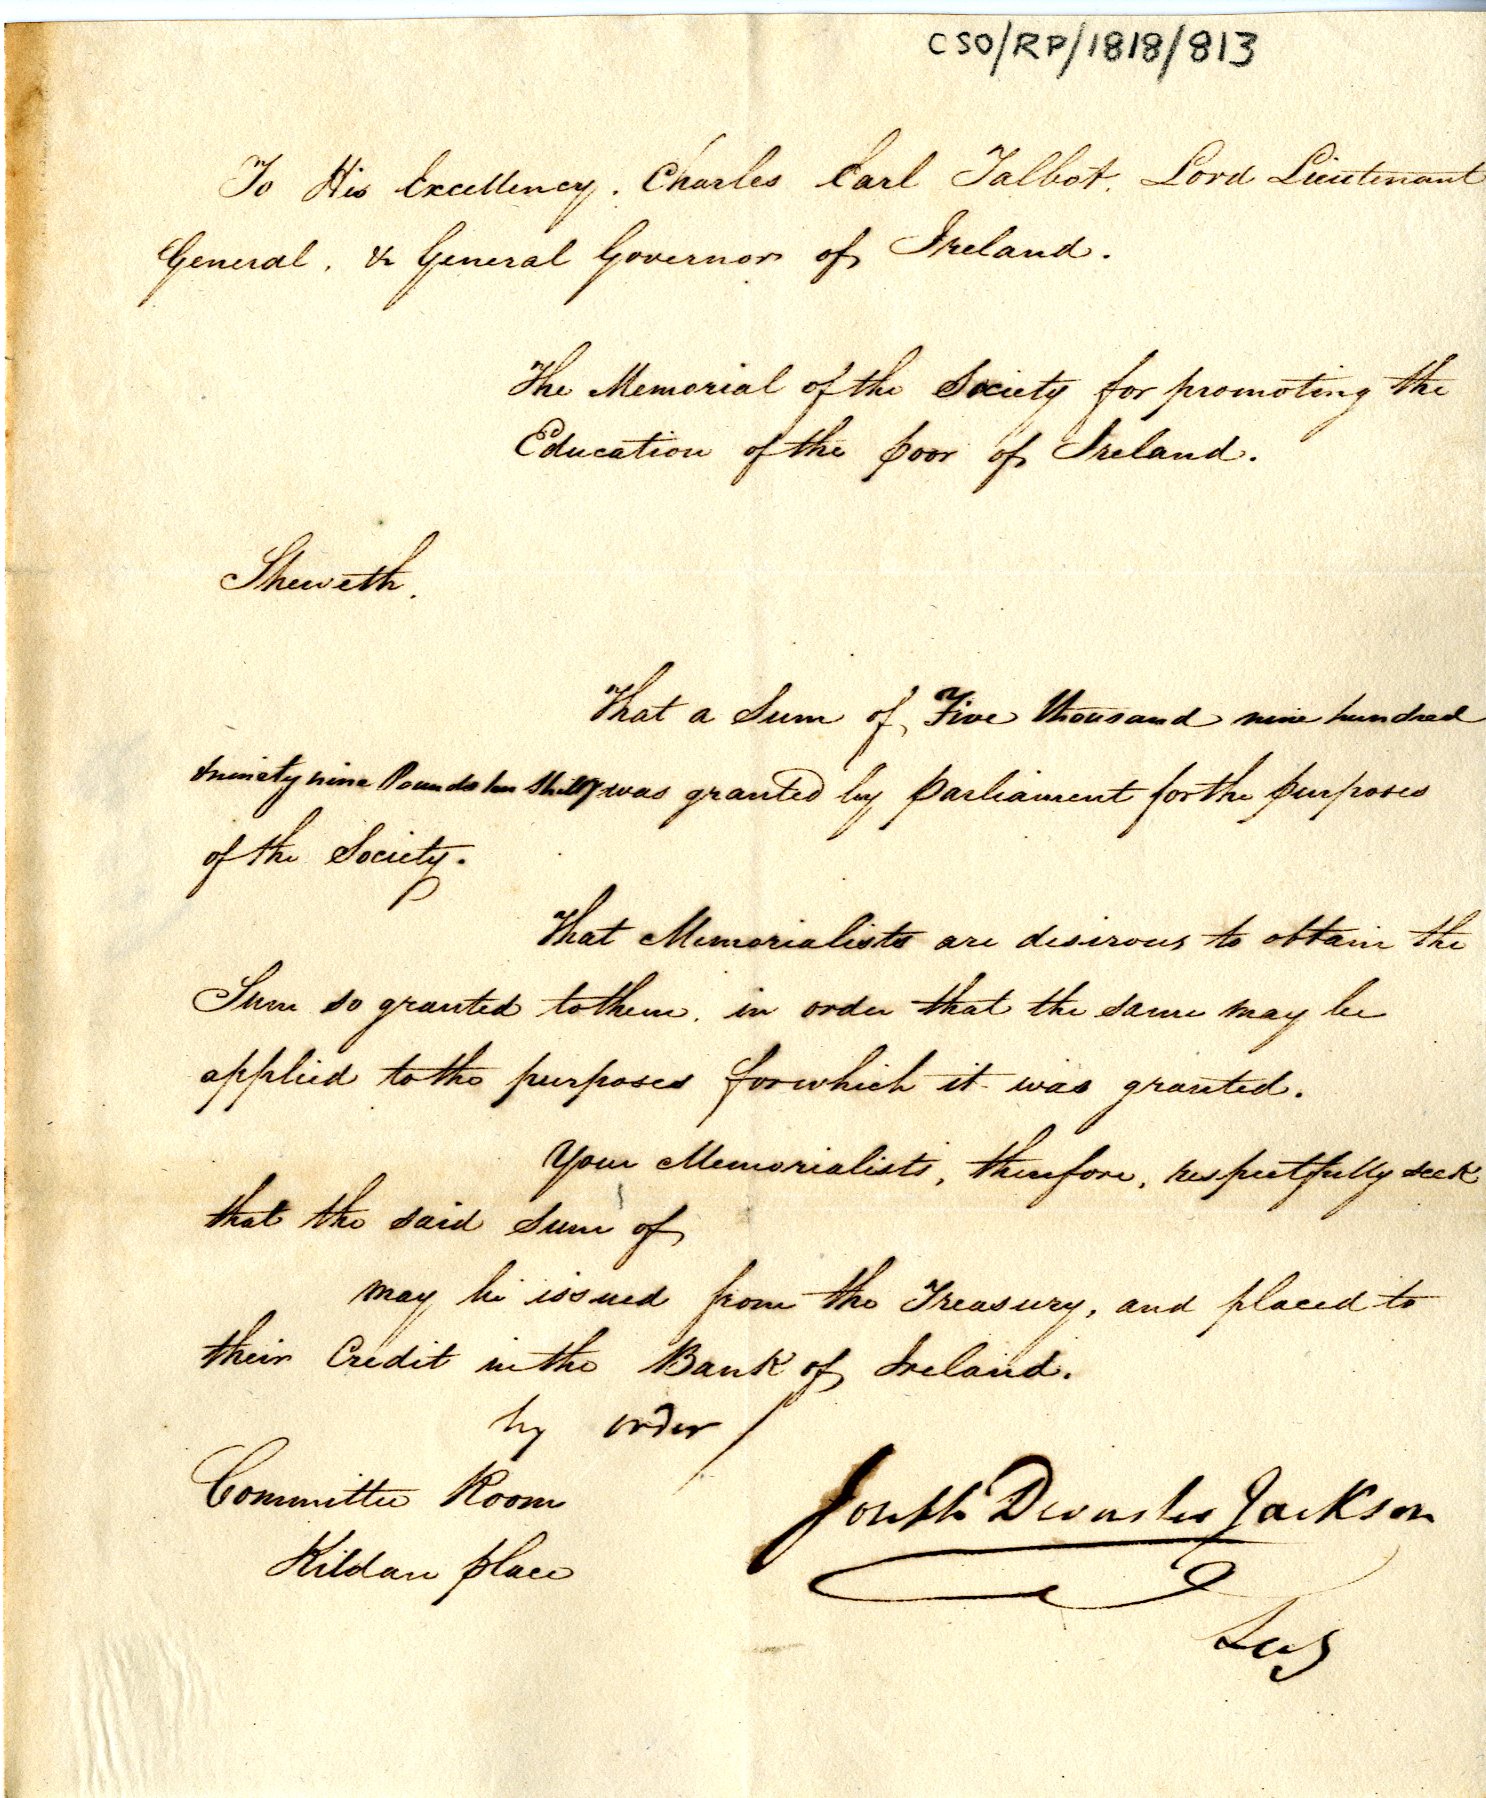 CSO/RP/1818/813
To His Excellency. Charles Earl Talbot. Lord Lieutenant
General, & General Governor of Ireland.
The Memorial of the Society for promoting the
Education of the poor of Ireland.
Sheweth.
That a Sum of Five thousand nine hundred
& ninety nine Pounds ten Shillgs was granted by parliament for the purposes
of the Society.
That Memorialists are desirous to obtain the
Sum so granted to them. in order that the same may be
applied to the purposes for which it was granted.
Your Memorialists, therefore, respectfully seek
that the said Sum of
may be issued from the Treasury, and placed to
their Credit in the Bank of Ireland.
by order /
Committee Room
Kildare place
Joseph Devonsher Jackson
Secy